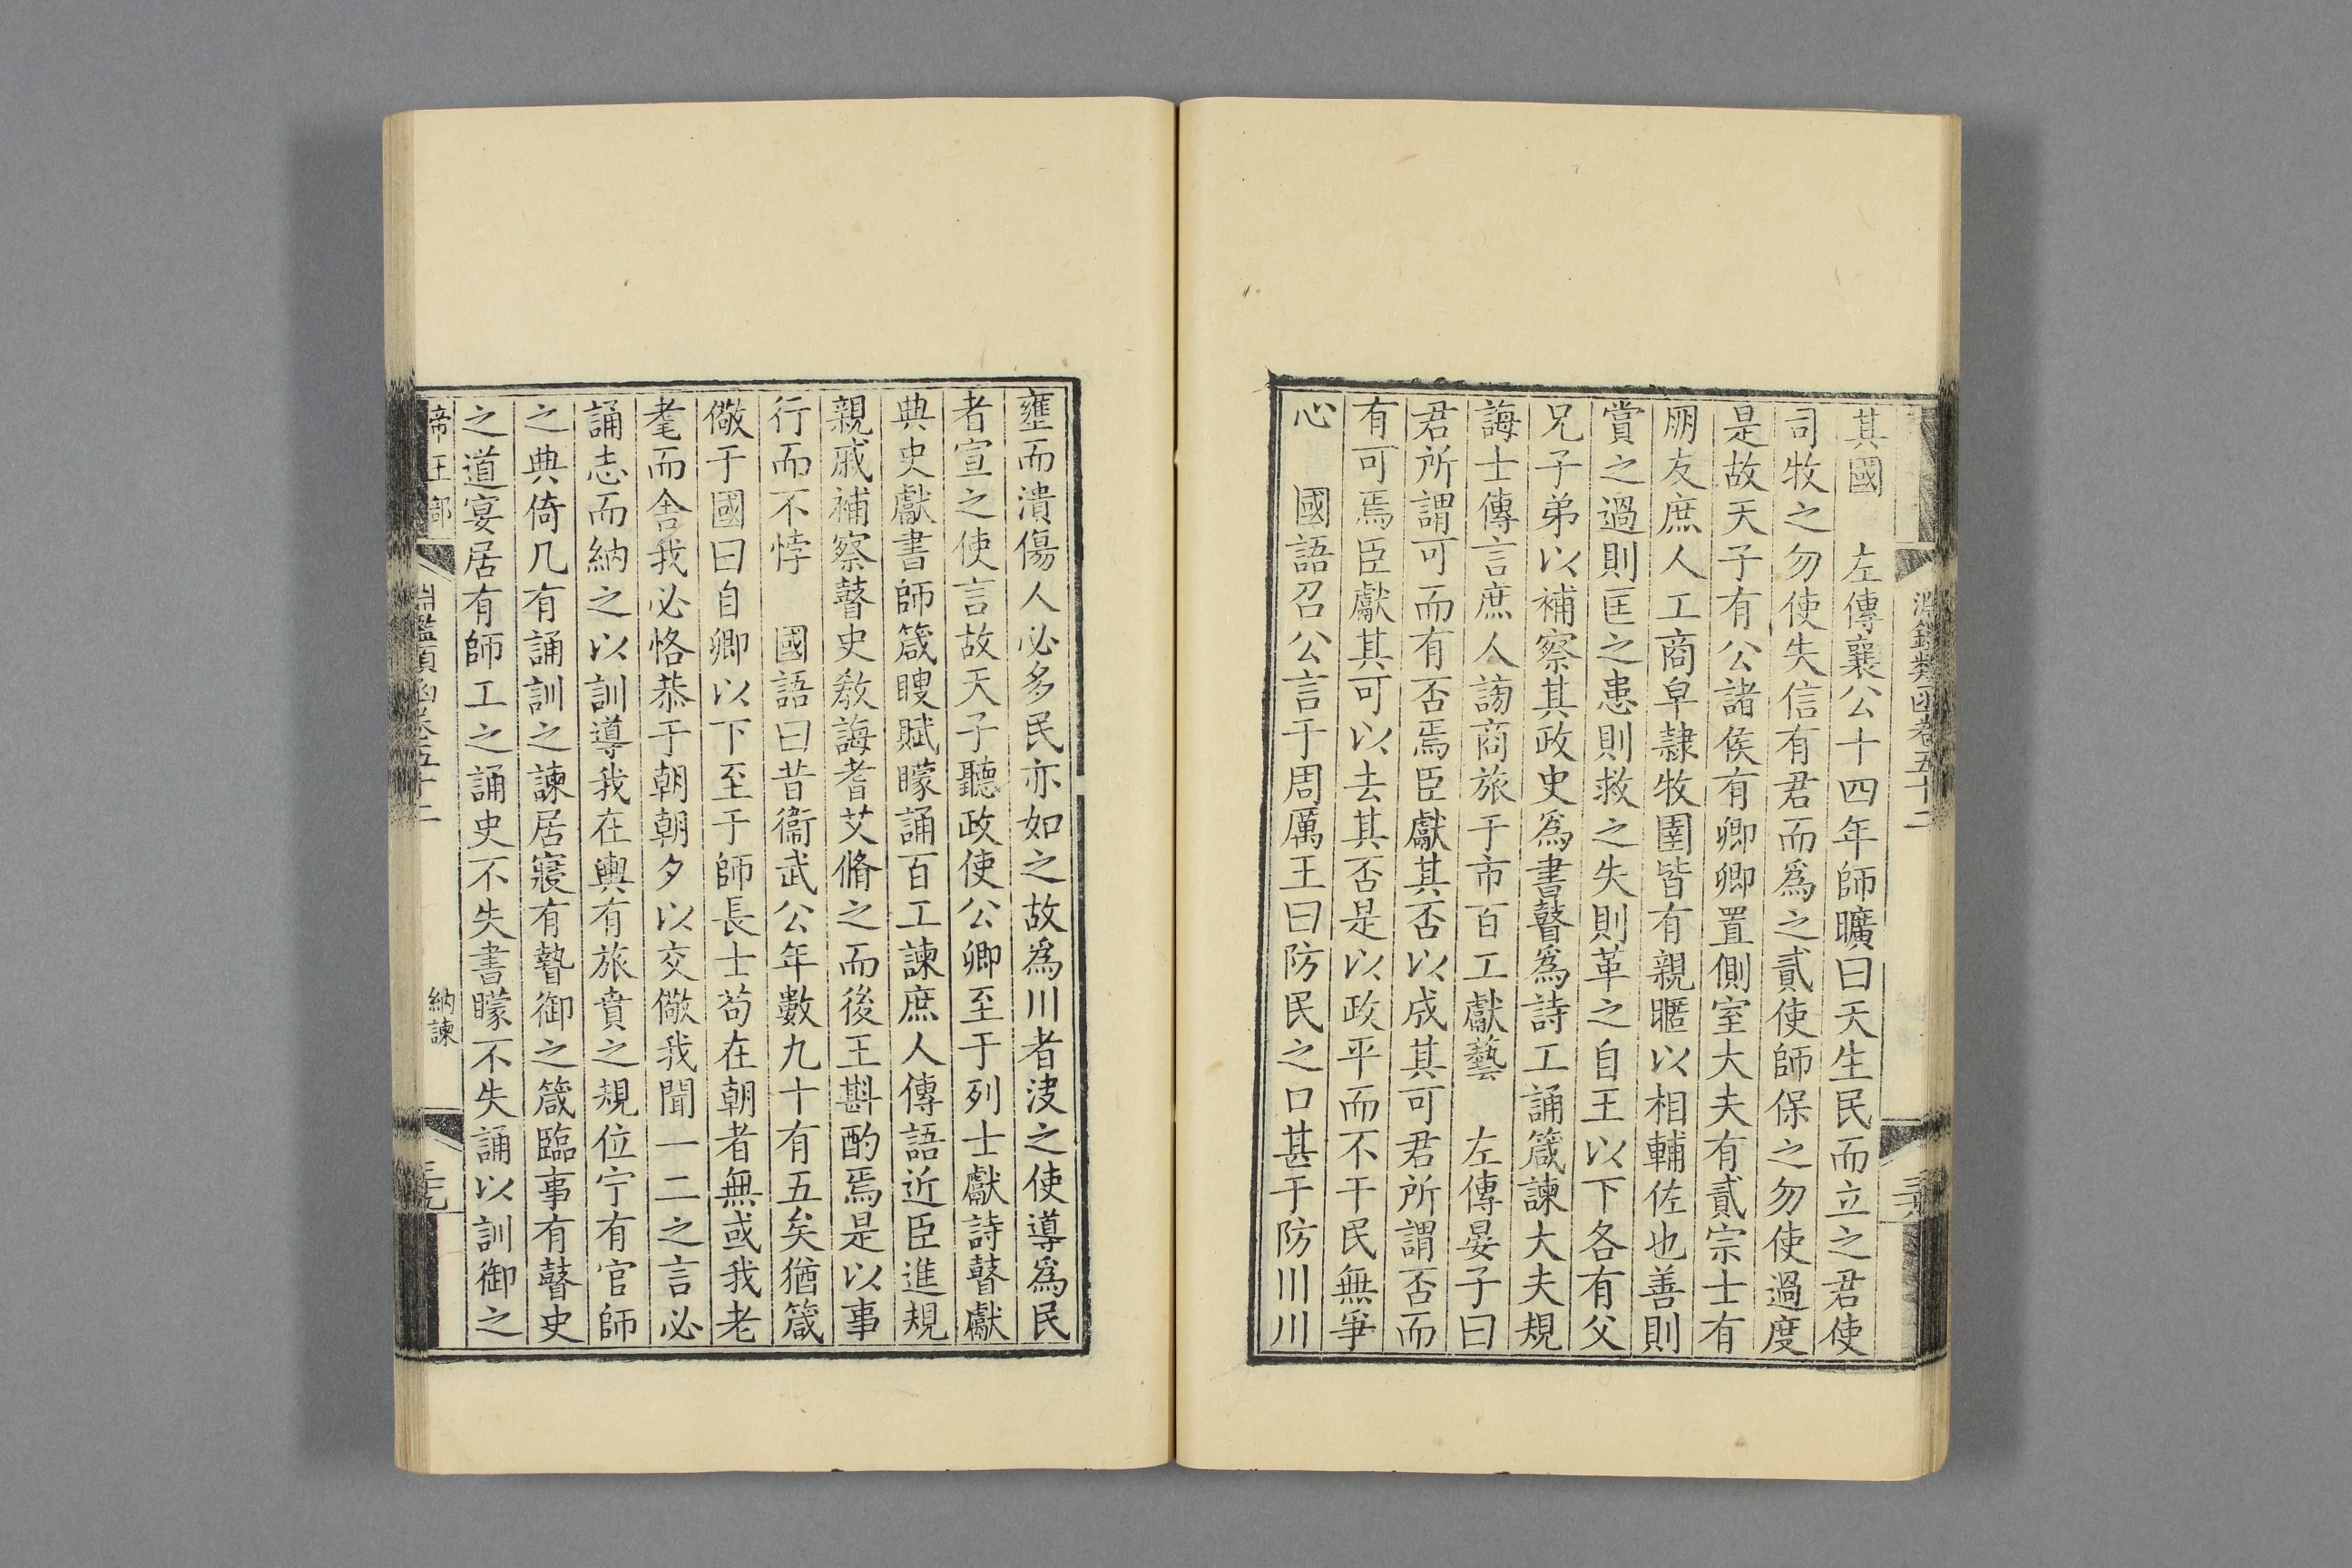 淵鑑類函卷五十二
其國　左傳襄公十四年師曠曰天生民而立之君使
司牧之勿使失信有君而爲之貳使師保之勿使過度
是故天子有公諸侯有卿卿置側室大夫有貳宗士有
朋友庶人工商皁隸牧圉皆有親暱以相輔佐也善則
賞之過則匡之患則救之失則革之自王以下各有父
兄子弟以補察其政史爲書瞽爲詩工誦箴諫大夫規
誨士傳言庶人謗商旅于市百工獻藝　左傳晏子曰
君所謂可而有否焉臣獻其否以成其可君所謂否而
有可焉臣獻其可以去其否是以政平而不干民無爭
心　國語召公言于周厲王曰防民之口甚于防川川
壅而潰傷人必多民亦如之故爲川者決之使導爲民
者宣之使言故天子聽政使公卿至于列士獻詩瞽獻
典史獻書師箴瞍賦矇誦百工諫庶人傳語近臣進規
親戚補察瞽史敎誨耆艾脩之而後王斟酌焉是以事
行而不悖　國語曰昔衞武公年數九十有五矣猶箴
儆于國曰自卿以下至于師長士苟在朝者無或我老
耄而舍我必恪恭于朝朝夕以交儆我聞一二之言必
誦志而納之以訓導我在輿有旅賁之規位宁有官師
之典倚几有誦訓之諫居寢有暬御之箴臨事有瞽史
之道宴居有師工之誦史不失書矇不失誦以訓御之
帝王部　淵鑑類函卷五十二　納諫